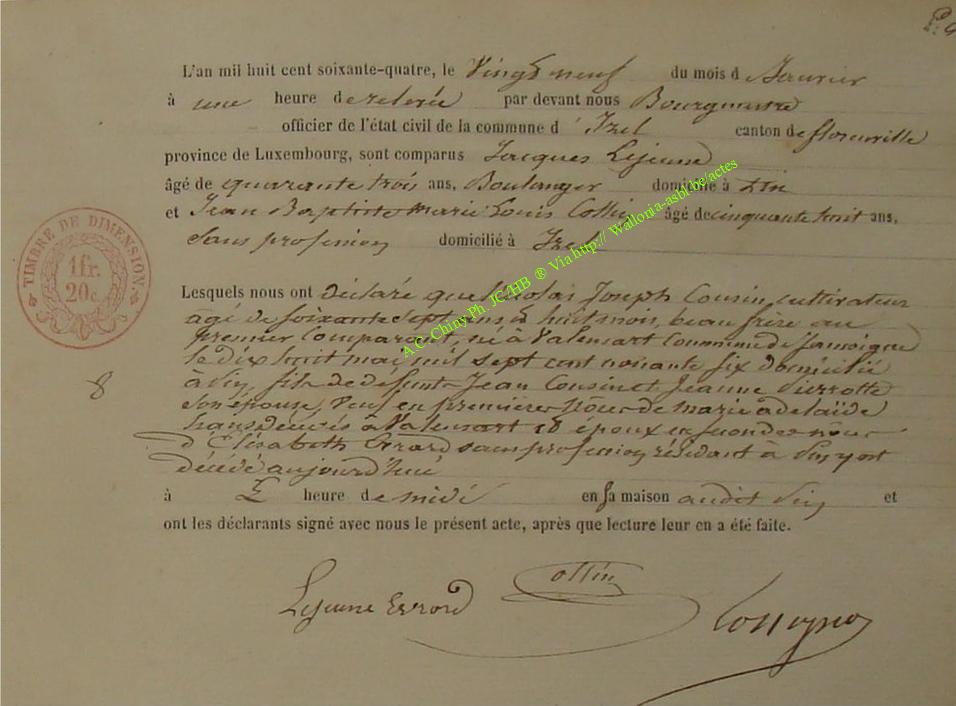 P. 9
L'an mil huit cent soixante-quatre, le Vingt neuf du mois d Janvier
à une heure de relevée par devant nous Bourgmestre
officier de l'état civil de la commune d'Izel canton de florenville
province de Luxembourg, sont comparus Jacques Lejeune
âgé de quarante trois ans, Boulanger domicilié à
et Jean Baptiste marie Louis Collin âgé de cinquante huit ans,
Sans profession domicilié à Izel
TIMBRE DE DIMENSION.
1fr.
20c.
Lesquels nous ont déclaré que Nicolas Joseph Cousin, cultivateur
âgé de soixante sept ans & huit mois, beau frère au
premier Comparant, né à Valensart Commune de Jamoigne
le dix huit mai mil sept cent nonante six domicilié
à fils de défunts Jean Cousin et Jeanne Pierrotte
8
son épouse, Veuf en premières nôces de marie adelaïde
décédée à Valensart & époux en secondes nôces
d'Élisabeth sans profession résidant à y est
décédé aujourd'hui
à heure de midi en sa maison audit et
ont les déclarants signé avec nous le présent acte, après que lecture leur en a été faite.
Lejeune Errard Collin
A.C. Chiny Ph. JC/HB ® Via http:// Wallonia-asbl.be/actes